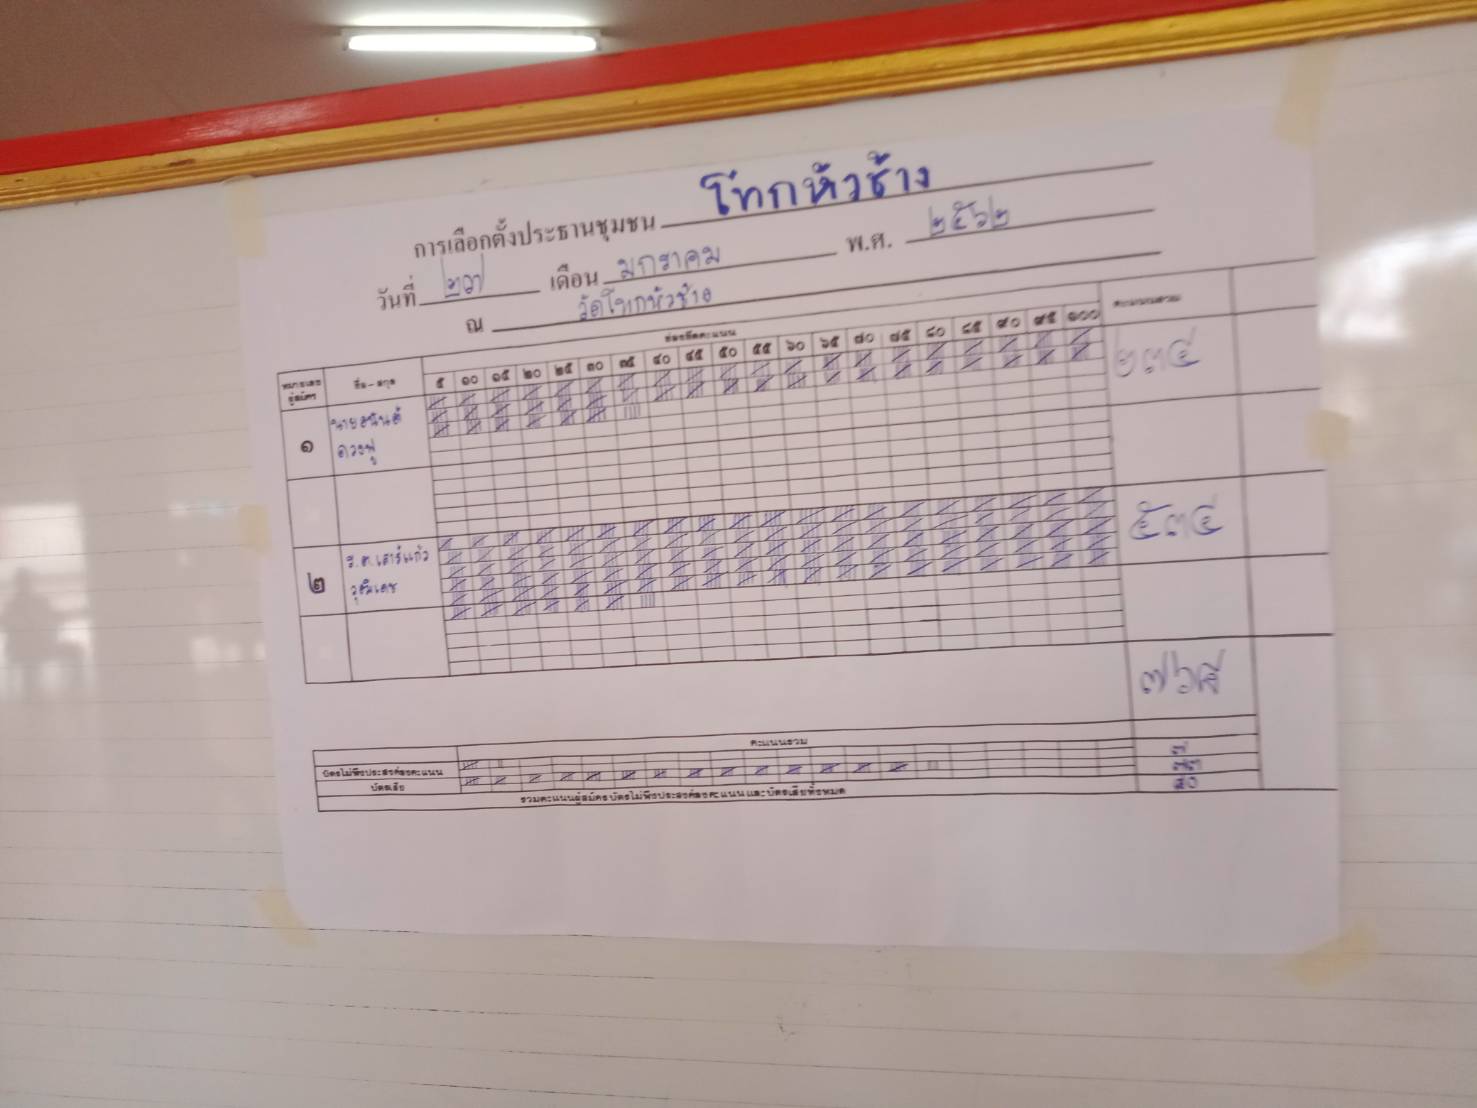 การเลือกตั้งประธานชุมชน โทกหัวช้าง
วันที่ ๒๗ เดือน มกราคม พ.ศ. ๒๕๖๒
ณ วัดโทกหัวช้าง
ช่องขีดคะแนน
หมายเลขผู้สมัคร ชื่อ - สกุล ๕ ๑๐ ๑๕ ๒๐ ๒๕ ๓๐ ๓๕ ๔๐ ๔๕ ๕๐ ๕๕ ๖๐ ๖๕ ๗๐ ๗๕ ๘๐ ๘๕ ๙๐ ๙๕ ๑๐๐ คะแนนรวม
๑ นายอนันต์ ดวงฟู ๒๓๔
๒ ร.ต.เสาร์แก้ว วุฒิเดช ๕๓๔
๗๖๘
คะแนนรวม
บัตรไม่พึงประสงค์ลงคะแนน ๗
บัตรเสีย ๗๓
รวมคะแนนผู้สมัคร บัตรไม่พึงประสงค์ลงคะแนน และบัตรเสียทั้งหมด ๘๐